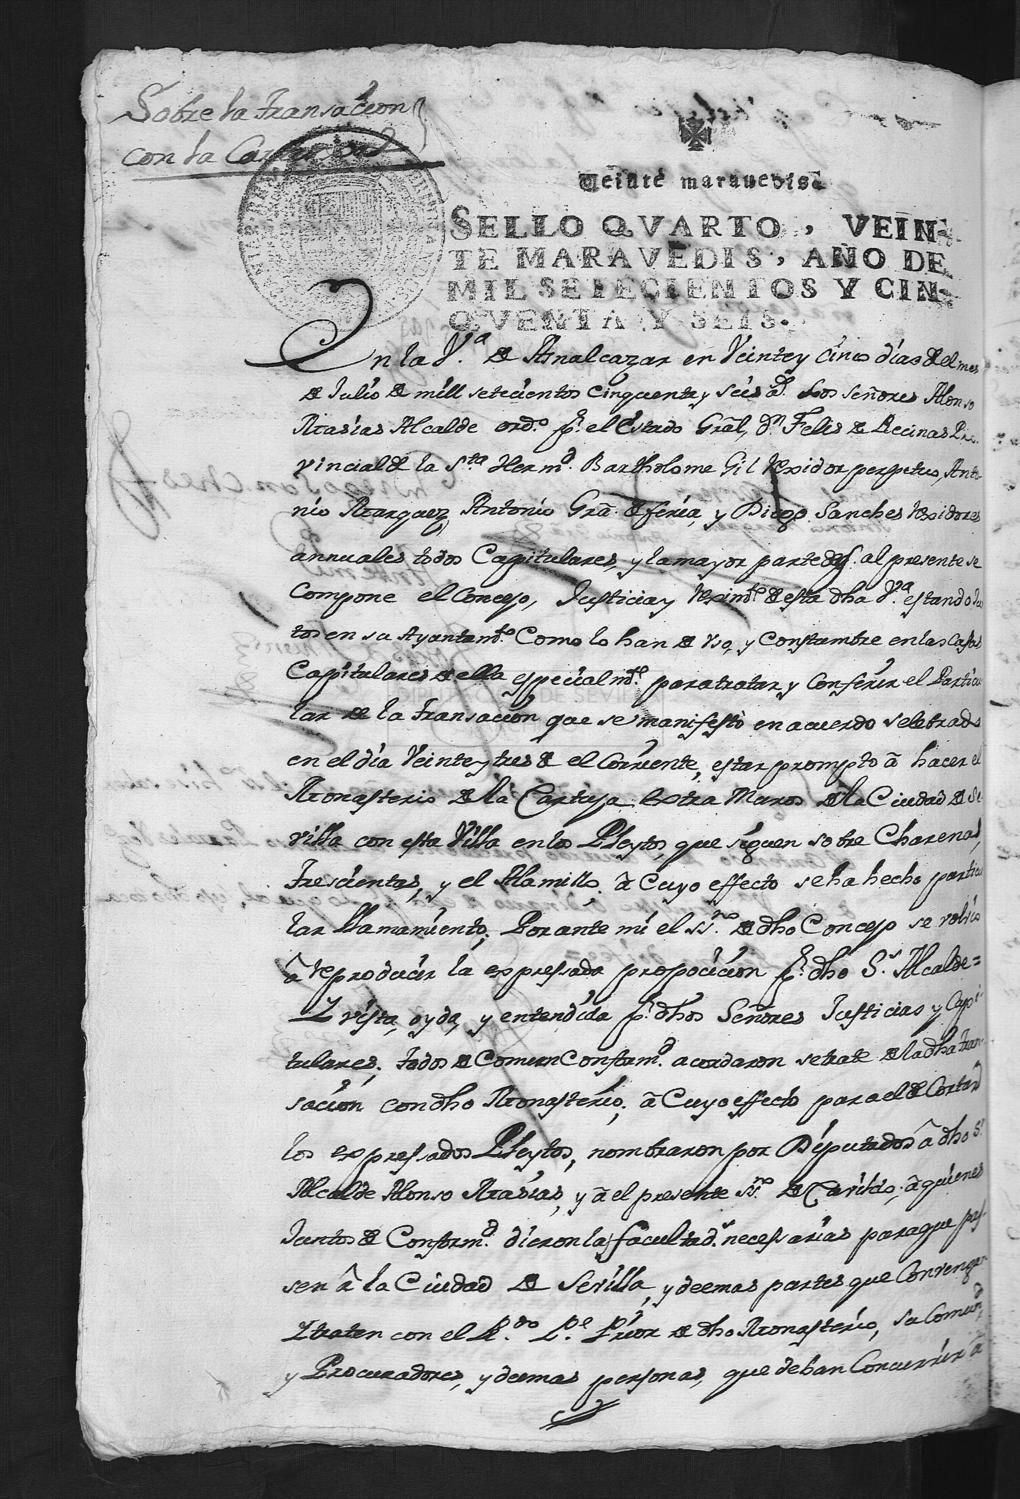 Sobre la transaccion
con la Cartuxa
Veinte maravedis
SELLO QVARTO, VEIN-
TE MARAVEDIS, AÑO DE
MIL SETECIENTOS Y CIN-
QVENTA Y SEIS.
En la V.ª de Aznalcazar en Veinte y cinco dias de el mes
de Julio de mill setecientos cinquenta y seis a.s Los señores Alonso
Macias Alcalde ord.º p.r el estado Gral, d.n Felis de Becinas Pro-
vincial de la S.ta Herm.d Bartholome Gil Rexidor perpetuo, Anto-
nio Marquez, Antonio Gra. de feria, y Diego Sanches Rexidores
annuales todos Capitulares, y la mayor parte de q. al presente se
Compone el Concejo, Justicia y Rexim.to de esta dha V.ª estando jun-
tos en su Ayuntam.to Como lo han de Vso, y Constumbre en las Casas
Capitulares de ella especialm.te para tratar, y Conferir el Particu-
lar de la transaccion que se manifestò en acuerdo selebrado
en el dia Veinte y tres de el Corriente, estar prompto â hacer el
Monasterio de la Cartuja Extra Muros de la Ciudad de Se-
villa con esta Villa en los Pleytos, que siguen sobre Charenas,
Trescientas, y el Alamillo. â Cuyo effecto se ha hecho particu-
lar llamamiento; Por ante mi el ss.no de dho Concejo se volvio
â reproducir la expressada proposicion p.r dho S.r Alcalde=
Y vista, oyda, y entendida p.r dhos Señores Justicias y Capi-
tulares, todos de Comun Conform.d acordaron se trate de la dha tran-
saccion con dho Monasterio; â Cuyo effecto para el de Cortar
los expressados Pleytos, nombraron por Diputados â dho S.r
Alcalde Alonso Macias, y â el presente ss.no de Cavildo; â quienes
Juntos de Conform.d dieron las facultad.s necessarias para que pas-
sen â la Ciudad de Sevilla, y demas partes que Convengan
Y traten con el R.do P.e Prior de dho Monasterio, su Comun.d
y Procuradores, y demas personas, que deban Concurrir â